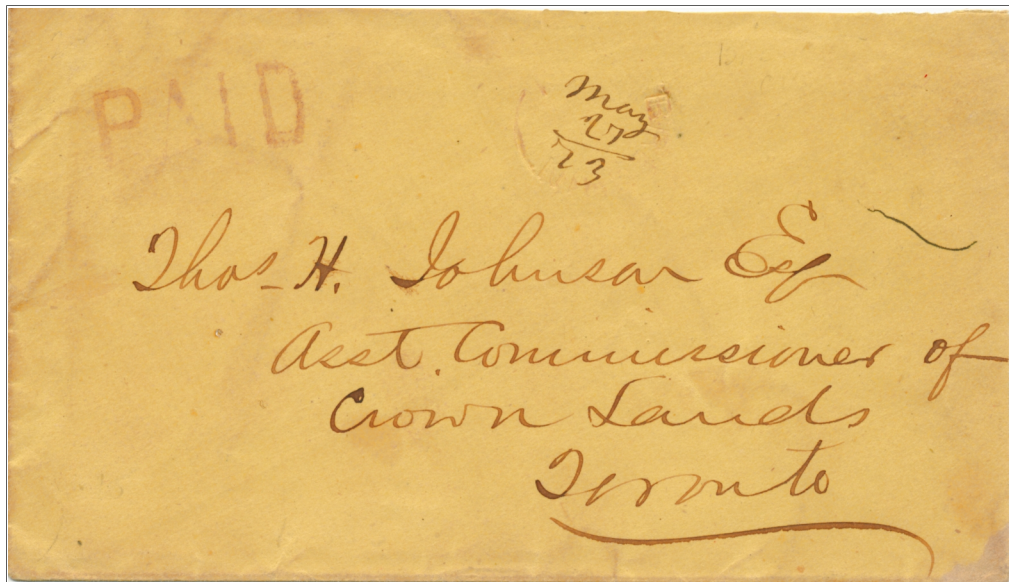 PAID
May
27
23
Thos H. Johnson Esq
Asst. Commissioner of
Crown Lands
Toronto